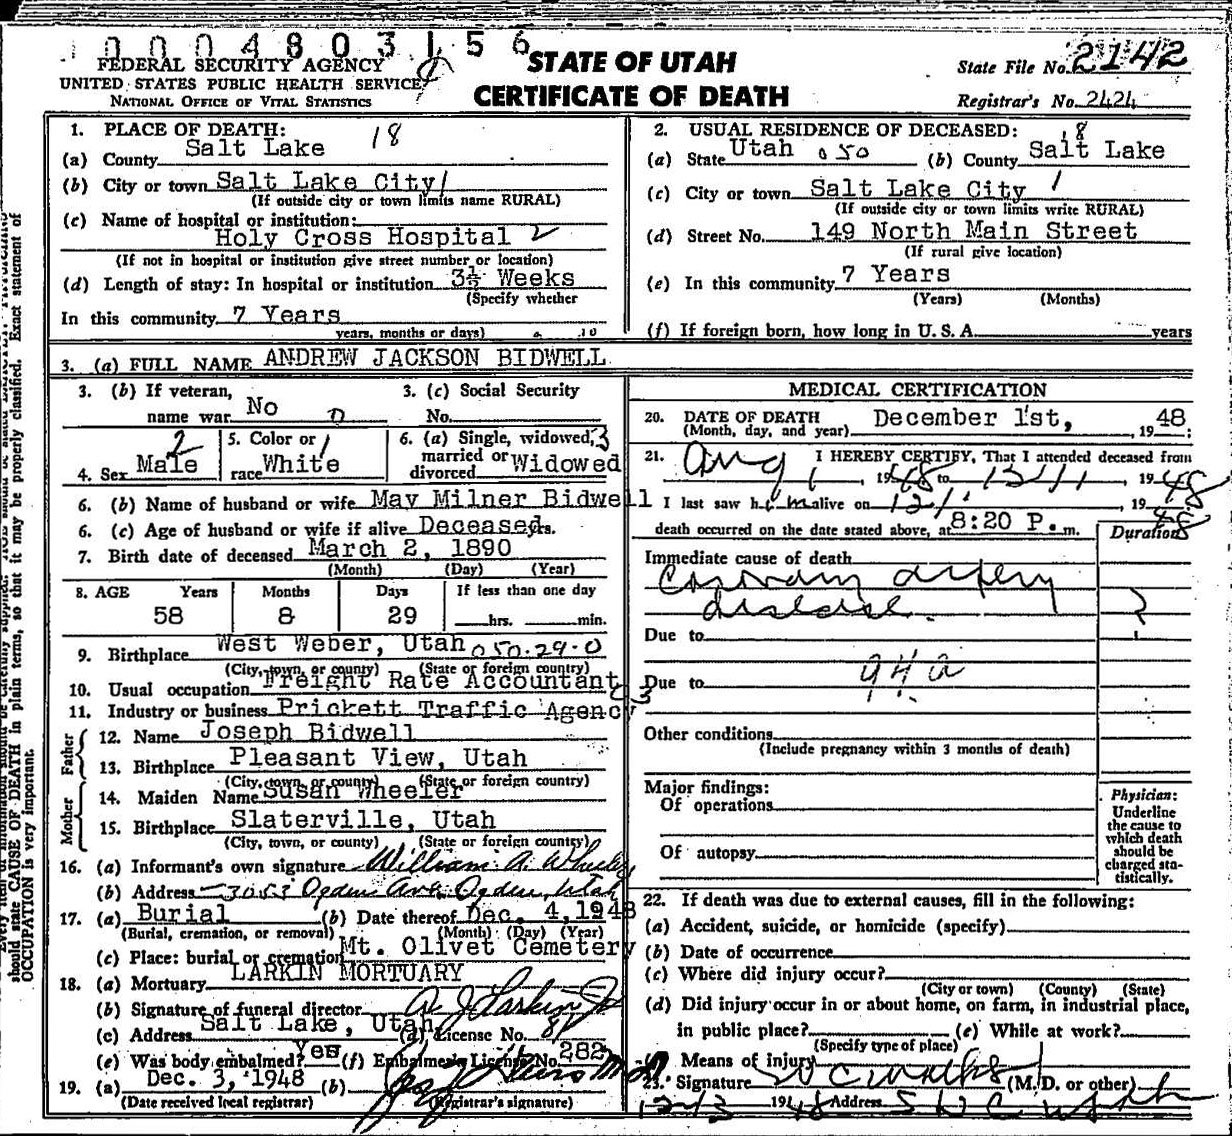 0004803156
FEDERAL SECURITY AGENCY
UNITED STATES PUBLIC HEALTH SERVICE
NATIONAL OFFICE OF VITAL STATISTICS
STATE OF UTAH
CERTIFICATE OF DEATH
State File No. 2142
Registrar's No. 2424
1. PLACE OF DEATH: 18
(a) County Salt Lake
(b) City or town Salt Lake City 1
(If outside city or town limits name RURAL)
(c) Name of hospital or institution:
Holy Cross Hospital 2
(If not in hospital or institution give street number or location)
(d) Length of stay: In hospital or institution 3½ Weeks
(Specify whether
In this community 7 Years
years, months or days)
2. USUAL RESIDENCE OF DECEASED: 18
(a) State Utah 050 (b) County Salt Lake
(c) City or town Salt Lake City 1
(If outside city or town limits write RURAL)
(d) Street No. 149 North Main Street
(If rural give location)
(e) In this community 7 Years
(Years) (Months)
(f) If foreign born, how long in U. S. A. years
3. (a) FULL NAME ANDREW JACKSON BIDWELL
3. (b) If veteran, 3. (c) Social Security
name war No 0 No.
4. Sex Male 2 5. Color or race White 1 6. (a) Single, widowed, married or divorced Widowed 3
6. (b) Name of husband or wife May Milner Bidwell
6. (c) Age of husband or wife if alive Deceased yrs.
7. Birth date of deceased March 2, 1890
(Month) (Day) (Year)
8. AGE Years Months Days If less than one day
58 8 29 hrs. min.
9. Birthplace West Weber, Utah 050-29-0
(City, town, or county) (State or foreign country)
10. Usual occupation Freight Rate Accountant
11. Industry or business Prickett Traffic Agency
Father
12. Name Joseph Bidwell
13. Birthplace Pleasant View, Utah
(City, town, or county) (State or foreign country)
Mother
14. Maiden Name Susan Wheeler
15. Birthplace Slaterville, Utah
(City, town, or county) (State or foreign country)
16. (a) Informant's own signature William A. Wheeler
(b) Address Ogden Ave. Ogden, Utah
17. (a) Burial (b) Date thereof Dec. 4, 1948
(Burial, cremation, or removal) (Month) (Day) (Year)
(c) Place: burial or cremation Mt. Olivet Cemetery
18. (a) Mortuary LARKIN MORTUARY
(b) Signature of funeral director A. J. Larkin Jr
(c) Address Salt Lake, Utah (d) License No. 81
(e) Was body embalmed? Yes (f) Embalmer's License No. 282
19. (a) Dec. 3, 1948 (b)
(Date received local registrar) (Registrar's signature)
MEDICAL CERTIFICATION
20. DATE OF DEATH December 1st, 1948:
(Month, day, and year)
21. I HEREBY CERTIFY, That I attended deceased from
Aug 1, 1948 to 12/1, 1948
I last saw him alive on 12/1 1948
death occurred on the date stated above, at 8:20 P. m.
Duration
Immediate cause of death
Coronary artery
disease. ?
Due to
94a
Due to
Other conditions
(Include pregnancy within 3 months of death)
Major findings:
Of operations
Of autopsy
Physician:
Underline
the cause to
which death
should be
charged sta-
tistically.
22. If death was due to external causes, fill in the following:
(a) Accident, suicide, or homicide (specify)
(b) Date of occurrence
(c) Where did injury occur?
(City or town) (County) (State)
(d) Did injury occur in or about home, on farm, in industrial place,
in public place? (e) While at work?
(Specify type of place)
Means of injury
23. Signature (M.D. or other)
12/3 1948 Address S L C Utah
should state CAUSE OF DEATH in plain terms, so that it may be properly classified. Exact statement of
OCCUPATION is very important.